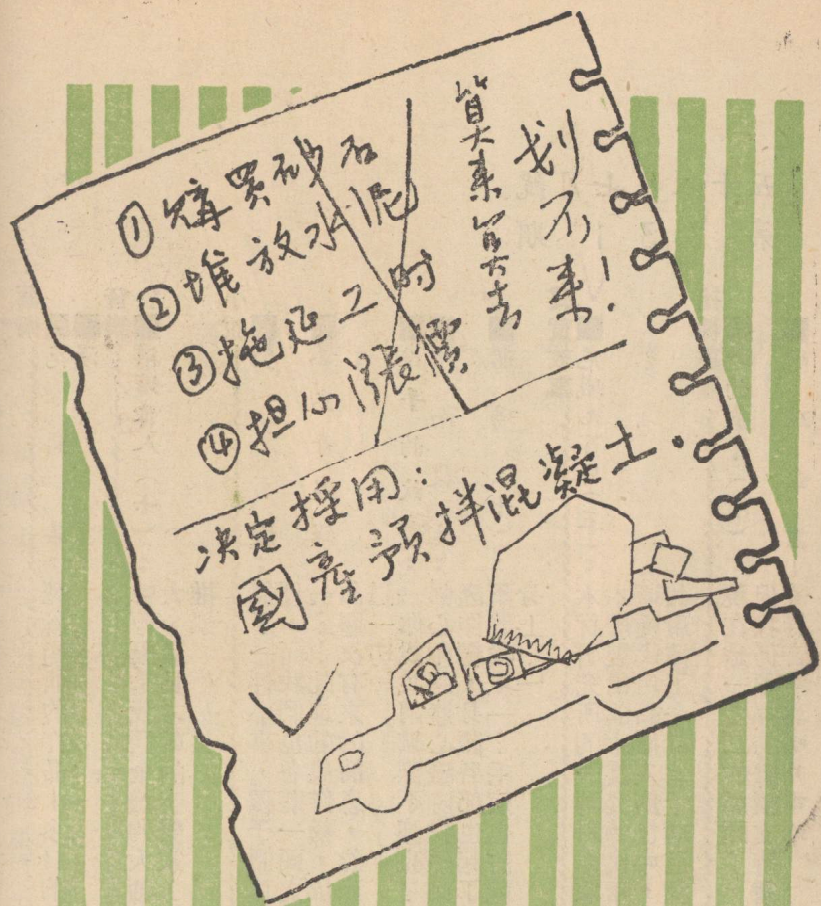 ①購買砂石
②堆放水泥
③拖延工时
④担心漲價
算来算去
划不来！
决定採用：
國產預拌混凝土.